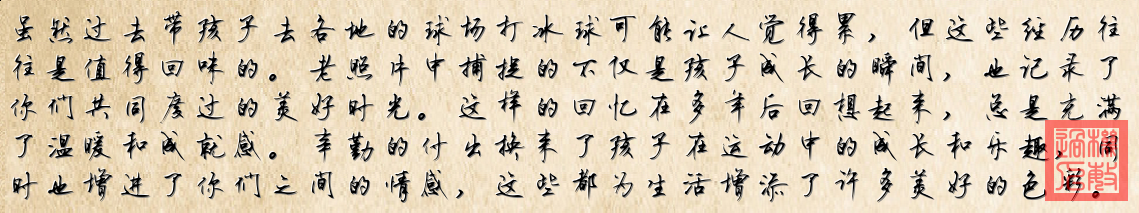 虽然过去带孩子去各地的球场打冰球可能让人觉得累，但这些经历往
往是值得回味的。老照片中捕捉的不仅是孩子成长的瞬间，也记录了
你们共同度过的美好时光。这样的回忆在多年后回想起来，总是充满
了温暖和成就感。辛勤的付出换来了孩子在运动中的成长和乐趣，同
时也增进了你们之间的情感，这些都为生活增添了许多美好的色彩。